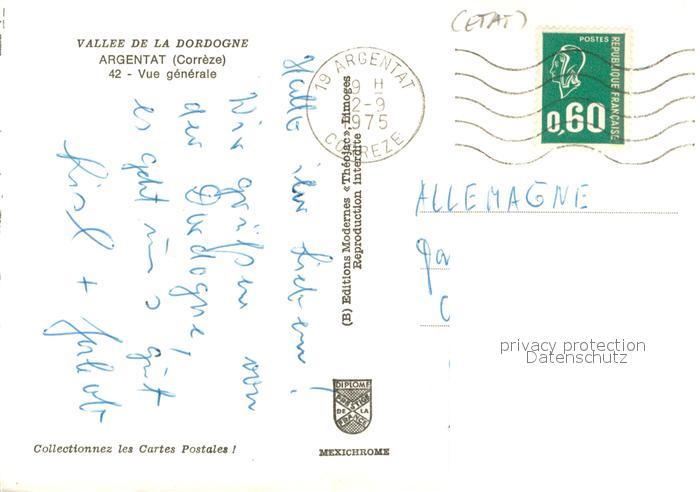 (ETAT)
VALLEE DE LA DORDOGNE
ARGENTAT (Corrèze)
42 - Vue générale
19 ARGENTAT
9 H
2-9
1975
CORREZE
POSTES
REPUBLIQUE FRANÇAISE
0,60
Hallo ihr Lieben!
Wir grüßen von
der Dordogne!
es geht uns gut
(B) Editions Modernes «Théojac», Limoges
Reproduction interdite
ALLEMAGNE
privacy protection
Datenschutz
DIPLOME
PRESTIGE
DE LA
FRANCE
Collectionnez les Cartes Postales !
MEXICHROME